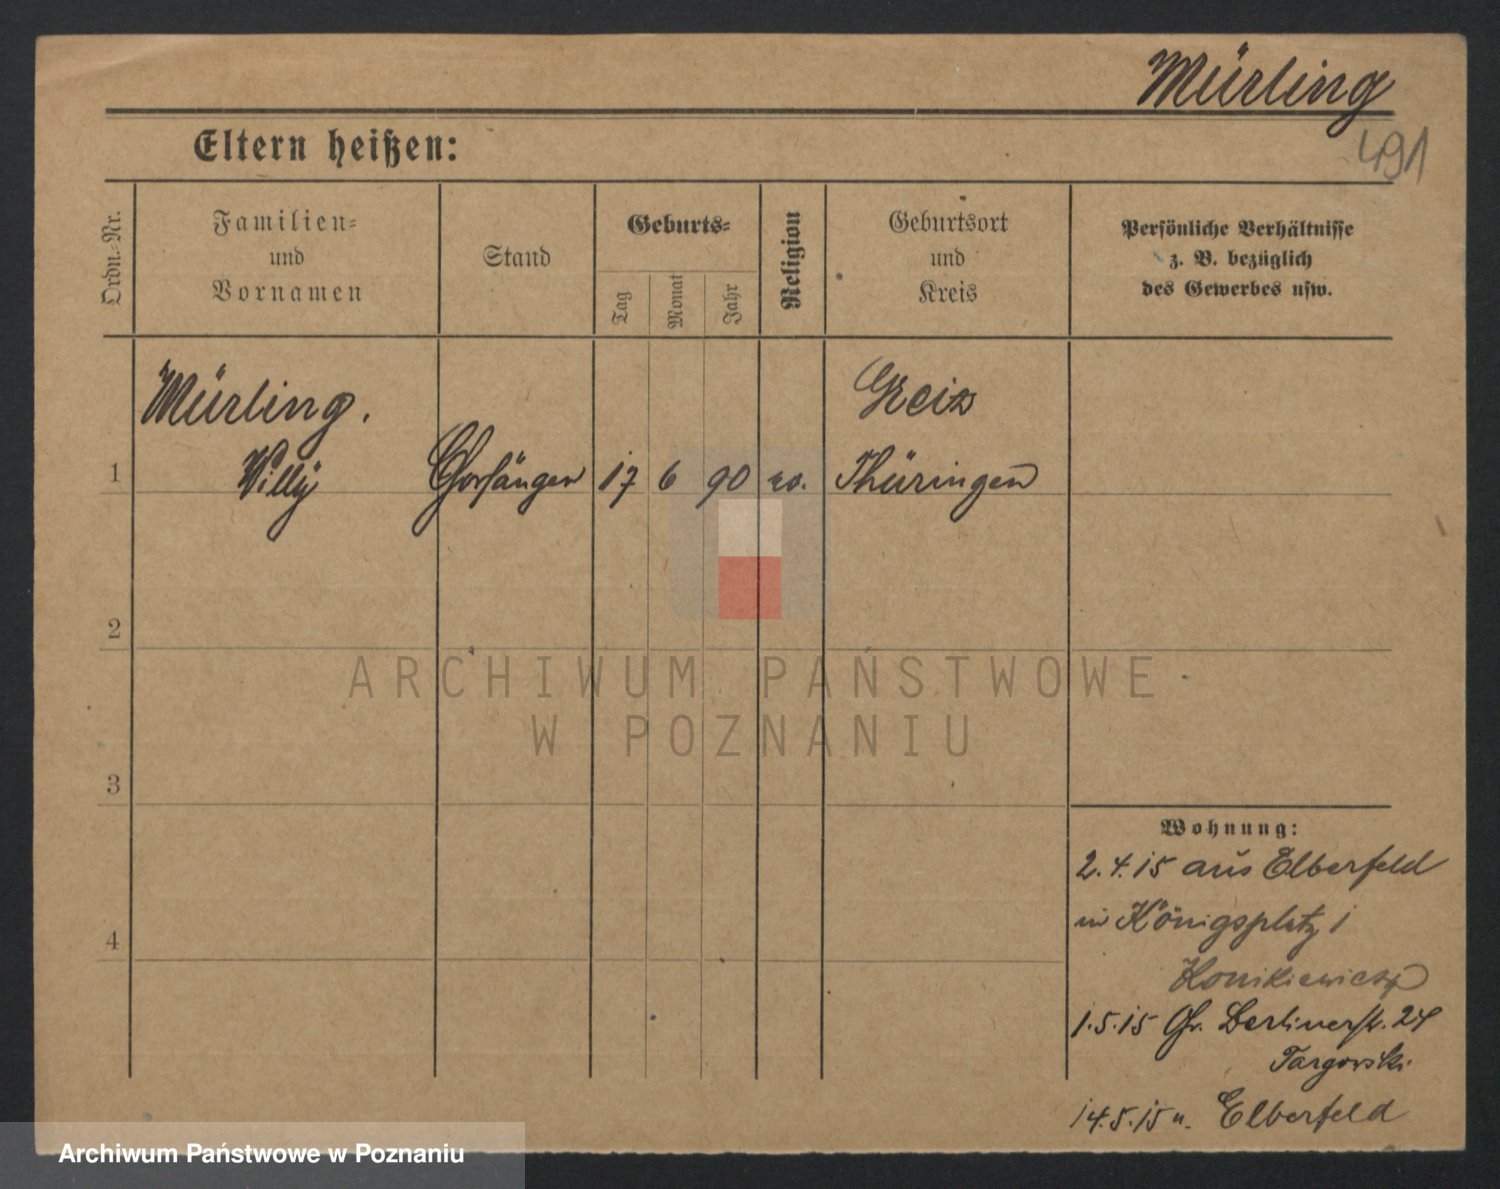 Mürling
491
Eltern heißen:
Ordn.-Nr.
Familien-
und
Vornamen
Stand
Geburts-
Tag
Monat
Jahr
Religion
Geburtsort
und
Kreis
Persönliche Verhältnisse
z. B. bezüglich
des Gewerbes usw.
Mürling.
Greiz
1 Willy Chorsänger 17 6 90 Thüringen
2
3
4
Wohnung:
2.4.15 aus Elberfeld
in Königsplatz 1
1.5.15 Gr. Berlinerstr. 24
Targowski
14.5.15 n. Elberfeld
ARCHIWUM PAŃSTWOWE
W POZNANIU
Archiwum Państwowe w Poznaniu